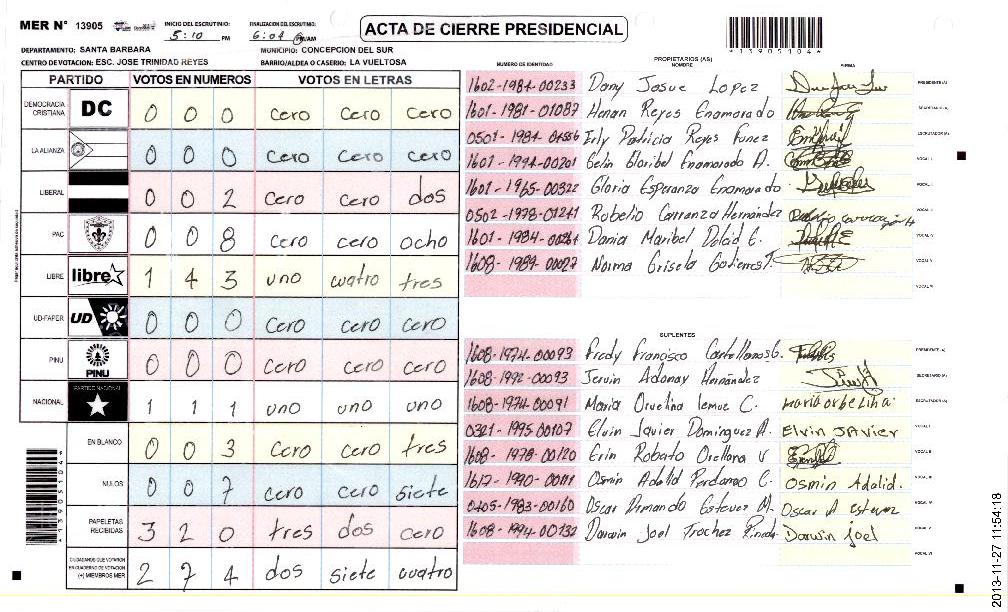 MER N° 13905
INICIO DEL ESCRUTINIO: 5:10 PM
FINALIZACION DEL ESCRUTINIO: 6:04 PM/AM
ACTA DE CIERRE PRESIDENCIAL
*13905104*
DEPARTAMENTO: SANTA BARBARA
MUNICIPIO: CONCEPCION DEL SUR
CENTRO DE VOTACION: ESC. JOSE TRINIDAD REYES
BARRIO/ALDEA O CASERIO: LA VUELTOSA
PARTIDO VOTOS EN NUMEROS VOTOS EN LETRAS
DEMOCRACIA CRISTIANA DC 0 0 0 cero cero cero
LA ALIANZA 0 0 0 cero cero cero
LIBERAL 0 0 2 cero cero dos
PAC 0 0 8 cero cero ocho
LIBRE libre 1 4 3 uno cuatro tres
UD-FAPER UD 0 0 0 cero cero cero
PINU PINU 0 0 0 cero cero cero
NACIONAL PARTIDO NACIONAL 1 1 1 uno uno uno
EN BLANCO 0 0 3 cero cero tres
NULOS 0 0 7 cero cero siete
PAPELETAS RECIBIDAS 3 2 0 tres dos cero
CIUDADANOS QUE VOTARON EN CUADERNO DE VOTACION (+) MIEMBROS MER 2 7 4 dos siete cuatro
PROPIETARIOS (AS)
NUMERO DE IDENTIDAD NOMBRE FIRMA
1602-1984-00233 Dany Josue Lopez PRESIDENTE (A)
1601-1981-01087 Henan Reyes Enamorado SECRETARIO (A)
0501-1984-04556 Erly Patricia Reyes Funez ESCRUTADOR (A)
1601-1994-00201 Gloribel Enamorado A. VOCAL I
1601-1965-00322 Gloria Esperanza Enamorado
0502-1978-01241 Robelio Carranza Hernández
1601-1984-00261 Dania Maribel E. VOCAL IV
1608-1989-00027 Norma Grisela Gutierres T. VOCAL V
VOCAL VI
SUPLENTES
1608-1974-00093 Fredy Francisco Castellanos G. PRESIDENTE (A)
1608-1992-00093 Jervin Adonay Hernández SECRETARIO (A)
1608-1974-00091 Maria Orvelina lemus C. Maria orbelina ESCRUTADOR (A)
0321-1995-00107 Elvin Javier Dominguez A. Elvin JAvier VOCAL I
1608-1978-00120 Erin Roberto Orellana V VOCAL II
1617-1990-00111 Osmin Adalid Perdomo C. Osmin Adalid. VOCAL III
0405-1983-00160 Oscar Armando Estevez M. Oscar A estevez VOCAL IV
1608-1994-00232 Darwin Joel Trochez Pineda Darwin joel VOCAL V
VOCAL VI
*13905104*
2013-11-27 11:54:18